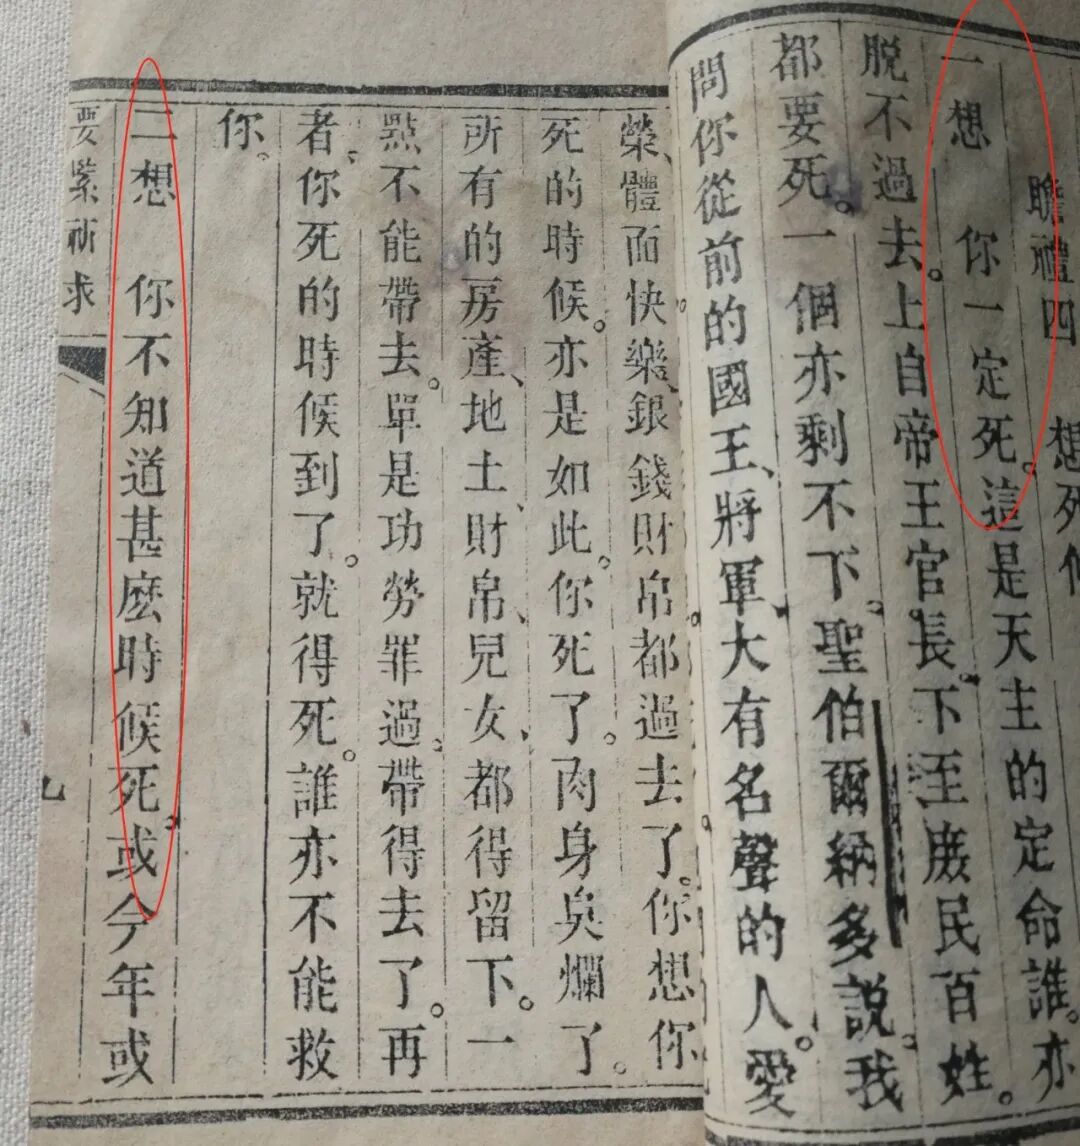 瞻禮四　想死候
一想　你一定死。這是天主的定命誰。亦
脫不過去。上自帝王官長。下至庻民百姓。
都要死。一個亦剩不下。聖伯爾納多說。我
問你從前的國王、將軍、大有名聲的人。愛
榮、體面快樂、銀錢財帛都過去了。你想你
死的時候。亦是如此。你死了。肉身臭爛了。
所有的房產、地土、財帛、兒女、都得留下。一
㸃不能帶去。單是功勞罪過。帶得去了。再
者、你死的時候到了。就得死。誰亦不能救
你。
二想　你不知道甚麽時候死。或今年或
要緊祈求
九